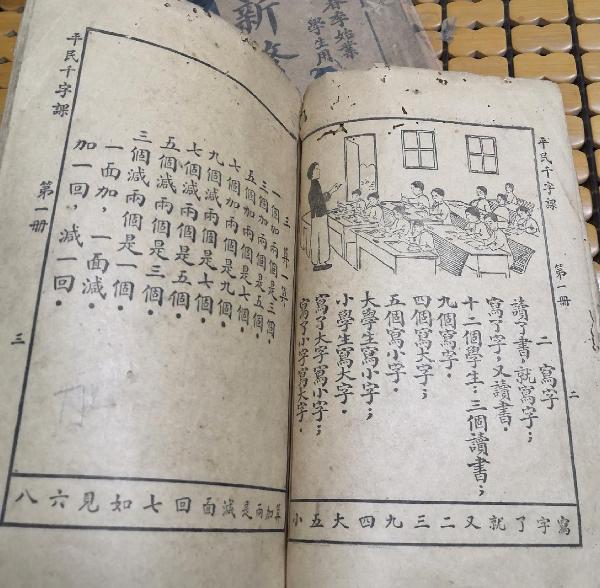 春季始業
學生用
新
平民千字課
第一冊
二
二 寫字
讀了書,就寫字;
寫了字,又讀書。
十二個學生:三個讀書;
九個寫字。
四個寫大字;
五個寫小字。
大學生寫小字;
小學生寫大字。
寫了大字寫小字;
寫了小字寫大字。
寫字了就又二三九四大五小
三 算一算
一個加兩個是三個。
三個加兩個是五個。
五個加兩個是七個。
七個加兩個是九個。
九個減兩個是七個。
七個減兩個是五個。
五個減兩個是三個。
三個減兩個是一個。
一面加,一面減。
加一回,減一回。
算加兩是減面回七如見六八
平民千字課
第一冊
三